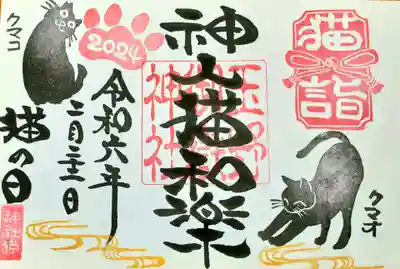 猫詣
クマオ
神山猫和楽
玉野
神社
2024
令和六年
二月二十二日
猫の日
クマコ
神社猫